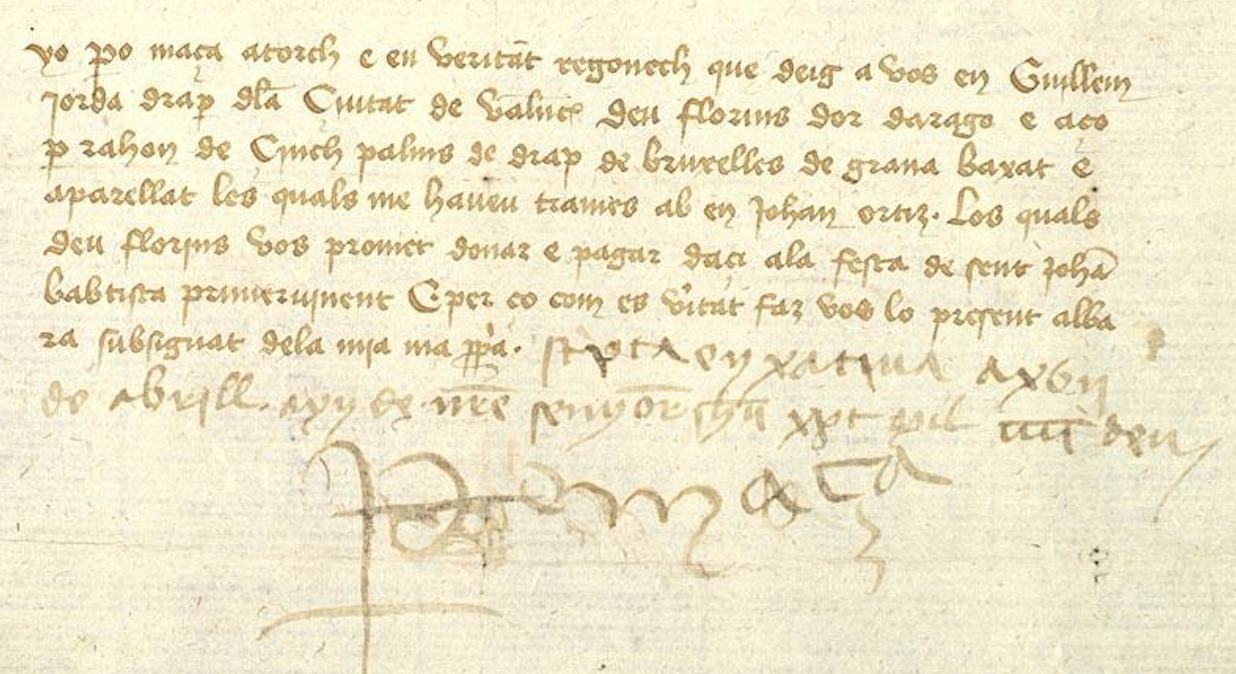 yo po maça atorch e en veritat regonech que deig a vos en Guillem
jorda drap dla Ciutat de valnc deu florins dor darago e aço
p rahon de Cinch palms de drap de bruxelles de grana baxat e
aparellat los quals me haveu trames ab en Johan ortiz. Los quals
deu florins vos promet donar e pagar daci ala festa de sent Johã
babtista primervinent E per ço com es vitat faz vos lo present alba
ra subsignat dela mia ma ppa. scrita en xativa a xvii
de abrill. any de nre senyor xpt mil deu
Pero maça